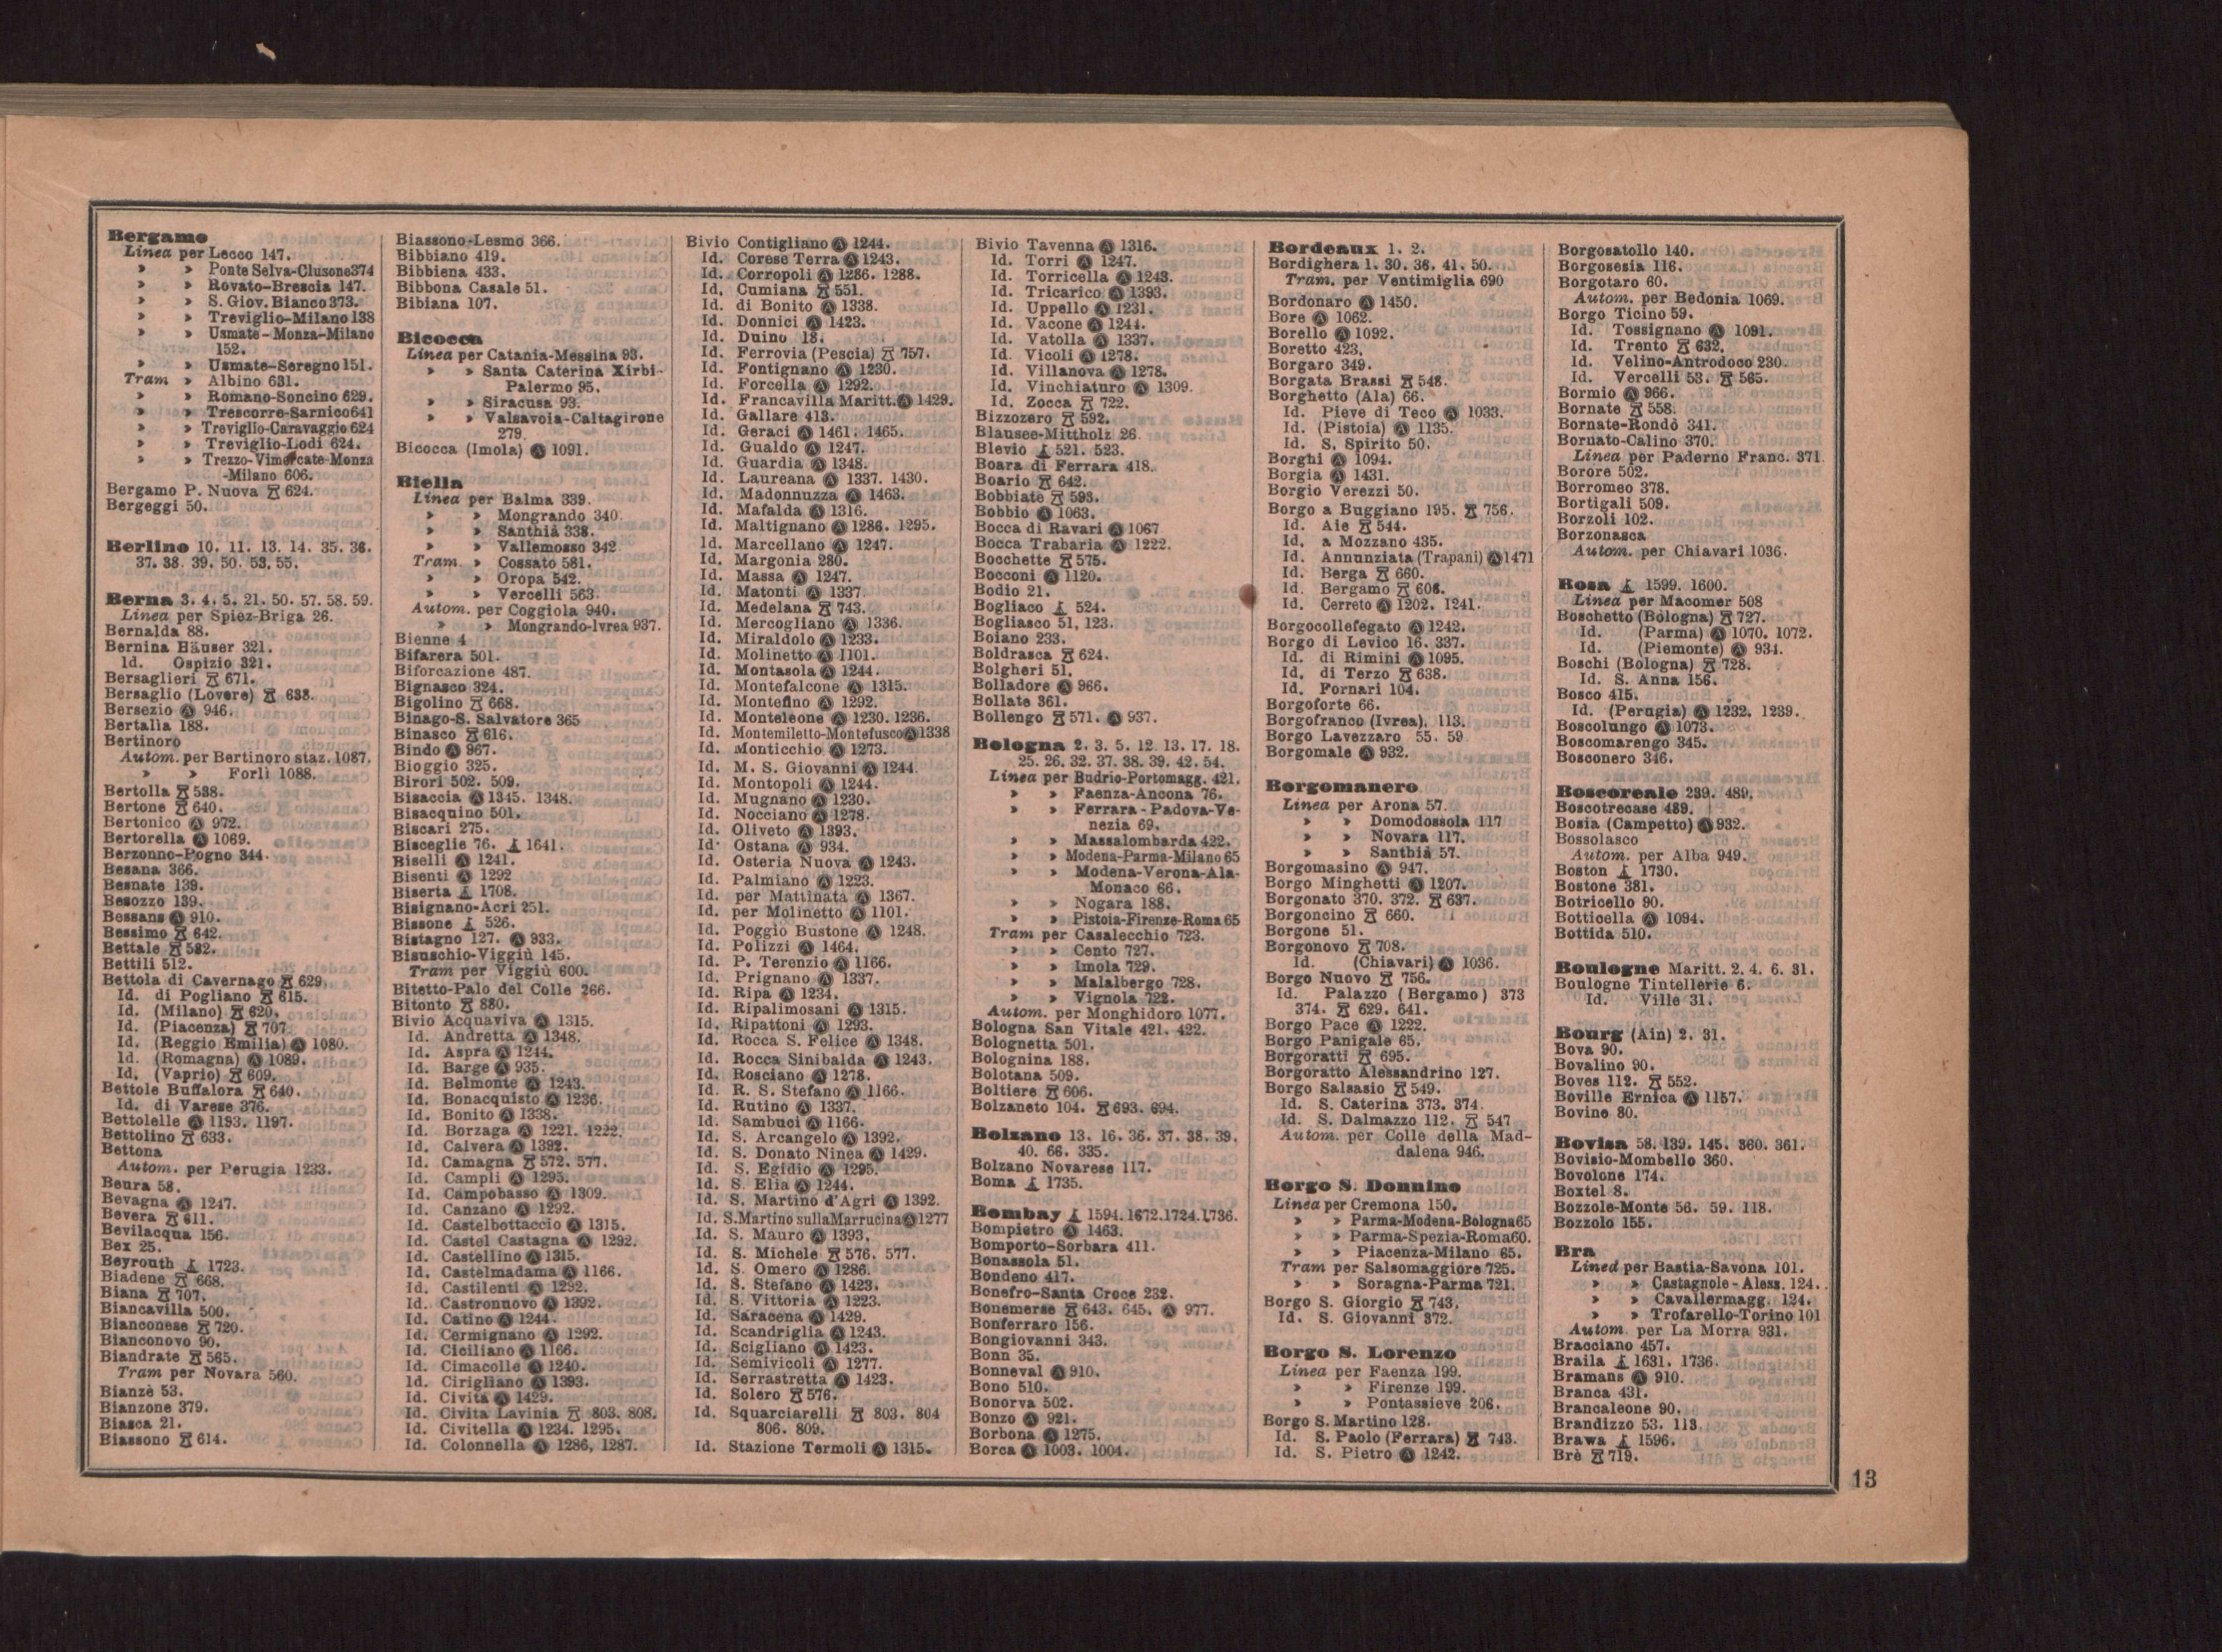 Bergamo
Linea per Lecco 147.
» » Ponte Selva-Clusone 374
» » Rovato-Brescia 147.
» » S. Giov. Bianco 373.
» » Treviglio-Milano 138
» » Usmate-Monza-Milano
152.
» » Usmate-Seregno 151.
Tram » Albino 631.
» » Romano-Soncino 629.
» » Trescorre-Sarnico 641
» » Treviglio-Caravaggio 624
» » Treviglio-Lodi 624.
» » Trezzo-Vimercate-Monza
-Milano 606.
Bergamo P. Nuova 624.
Bergeggi 50.
Berlino 10. 11. 13. 14. 35. 36.
37. 38. 39. 50. 53. 55.
Berna 3. 4. 5. 21. 50. 57. 58. 59.
Linea per Spiez-Briga 26.
Bernalda 88.
Bernina Häuser 321.
Id. Ospizio 321.
Bersaglieri 671.
Bersaglio (Lovere) 638.
Bersezio Ⓐ 946.
Bertalia 188.
Bertinoro
Autom. per Bertinoro staz. 1087.
» » Forlì 1088.
Bertolla 538.
Bertone 640.
Bertonico Ⓐ 972.
Bertorella Ⓐ 1069.
Berzonno-Pogno 344.
Besana 366.
Besnate 139.
Besozzo 139.
Bessans Ⓐ 910.
Bessimo 642.
Bettale 582.
Bettili 512.
Bettola di Cavernago 629.
Id. di Pogliano 615.
Id. (Milano) 620.
Id. (Piacenza) 707.
Id. (Reggio Emilia) Ⓐ 1080.
Id. (Romagna) Ⓐ 1089.
Id. (Vaprio) 609.
Bettole Buffalora 640.
Id. di Varese 376.
Bettolelle Ⓐ 1193. 1197.
Bettolino 633.
Bettona
Autom. per Perugia 1233.
Beura 58.
Bevagna Ⓐ 1247.
Bevera 611.
Bevilacqua 156.
Bex 25.
Beyrouth 1723.
Biadene 668.
Biana 707.
Biancavilla 500.
Bianconese 720.
Bianconovo 90.
Biandrate 565.
Tram per Novara 560.
Bianzè 53.
Bianzone 379.
Biasca 21.
Biassono 614.
Biassono-Lesmo 366.
Bibbiano 419.
Bibbiena 433.
Bibbona Casale 51.
Bibiana 107.
Bicocca
Linea per Catania-Messina 93.
» » Santa Caterina Xirbi-
Palermo 95.
» » Siracusa 93.
» » Valsavoia-Caltagirone
279.
Bicocca (Imola) Ⓐ 1091.
Biella
Linea per Balma 339.
» » Mongrando 340.
» » Santhià 338.
» » Vallemosso 342
Tram » Cossato 581.
» » Oropa 542.
» » Vercelli 563.
Autom. per Coggiola 940.
» » Mongrando-Ivrea 937.
Bienne 4
Bifarera 501.
Biforcazione 487.
Bignasco 324.
Bigolino 668.
Binago-S. Salvatore 365
Binasco 616.
Bindo Ⓐ 967.
Bioggio 325.
Birori 502. 509.
Bisaccia Ⓐ 1345. 1348.
Bisacquino 501.
Biscari 275.
Bisceglie 76. 1641.
Biselli Ⓐ 1241.
Bisenti Ⓐ 1292
Biserta 1708.
Bisignano-Acri 251.
Bissone 526.
Bistagno 127. Ⓐ 933.
Bisuschio-Viggiù 145.
Tram per Viggiù 600.
Bitetto-Palo del Colle 266.
Bitonto 880.
Bivio Acquaviva Ⓐ 1315.
Id. Andretta Ⓐ 1348.
Id. Aspra Ⓐ 1244.
Id. Barge Ⓐ 935.
Id. Belmonte Ⓐ 1243.
Id. Bonacquisto Ⓐ 1236.
Id. Bonito Ⓐ 1338.
Id. Borzaga Ⓐ 1221. 1222.
Id. Calvera Ⓐ 1392.
Id. Camagna 572. 577.
Id. Campli Ⓐ 1295.
Id. Campobasso Ⓐ 1309.
Id. Canzano Ⓐ 1292.
Id. Castelbottaccio Ⓐ 1315.
Id. Castel Castagna Ⓐ 1292.
Id. Castellino Ⓐ 1315.
Id. Castelmadama Ⓐ 1166.
Id. Castilenti Ⓐ 1292.
Id. Castronuovo Ⓐ 1392.
Id. Catino Ⓐ 1244.
Id. Cermignano Ⓐ 1292.
Id. Ciciliano Ⓐ 1166.
Id. Cimacolle Ⓐ 1240.
Id. Cirigliano Ⓐ 1393.
Id. Civita Ⓐ 1429.
Id. Civita Lavinia 803. 808.
Id. Civitella Ⓐ 1234. 1295.
Id. Colonnella Ⓐ 1286, 1287.
Bivio Contigliano Ⓐ 1244.
Id. Corese Terra Ⓐ 1243.
Id. Corropoli Ⓐ 1286. 1288.
Id. Cumiana 551.
Id. di Bonito Ⓐ 1338.
Id. Donnici Ⓐ 1423.
Id. Duino 18.
Id. Ferrovia (Pescia) 757.
Id. Fontignano Ⓐ 1230.
Id. Forcella Ⓐ 1292.
Id. Francavilla Maritt. Ⓐ 1429.
Id. Gallare 413.
Id. Geraci Ⓐ 1461. 1465.
Id. Gualdo Ⓐ 1247.
Id. Guardia Ⓐ 1348.
Id. Laureana Ⓐ 1337. 1430.
Id. Madonnuzza Ⓐ 1463.
Id. Mafalda Ⓐ 1316.
Id. Maltignano Ⓐ 1286. 1295.
Id. Marcellano Ⓐ 1247.
Id. Margonia 280.
Id. Massa Ⓐ 1247.
Id. Matonti Ⓐ 1337.
Id. Medelana 743.
Id. Mercogliano Ⓐ 1336.
Id. Miraldolo Ⓐ 1233.
Id. Molinetto Ⓐ 1101.
Id. Montasola Ⓐ 1244.
Id. Montefalcone Ⓐ 1315.
Id. Montefino Ⓐ 1292.
Id. Monteleone Ⓐ 1230. 1236.
Id. Montemiletto-Montefusco Ⓐ 1338
Id. Monticchio Ⓐ 1273.
Id. M. S. Giovanni Ⓐ 1244.
Id. Montopoli Ⓐ 1244.
Id. Mugnano Ⓐ 1230.
Id. Nocciano Ⓐ 1278.
Id. Oliveto Ⓐ 1393.
Id. Ostana Ⓐ 934.
Id. Osteria Nuova Ⓐ 1243.
Id. Palmiano Ⓐ 1223.
Id. per Mattinata Ⓐ 1367.
Id. per Molinetto Ⓐ 1101.
Id. Poggio Bustone Ⓐ 1248.
Id. Polizzi Ⓐ 1464.
Id. P. Terenzio Ⓐ 1166.
Id. Prignano Ⓐ 1337.
Id. Ripa Ⓐ 1234.
Id. Ripalimosani Ⓐ 1315.
Id. Ripattoni Ⓐ 1293.
Id. Rocca S. Felice Ⓐ 1348.
Id. Rocca Sinibalda Ⓐ 1243.
Id. Rosciano Ⓐ 1278.
Id. R. S. Stefano Ⓐ 1166.
Id. Rutino Ⓐ 1337.
Id. Sambuci Ⓐ 1166.
Id. S. Arcangelo Ⓐ 1392.
Id. S. Donato Ninea Ⓐ 1429.
Id. S. Egidio Ⓐ 1295.
Id. S. Elia Ⓐ 1244.
Id. S. Martino d'Agri Ⓐ 1392.
Id. S. Martino sulla Marrucina Ⓐ 1277
Id. S. Mauro Ⓐ 1393.
Id. S. Michele 576. 577.
Id. S. Omero Ⓐ 1286.
Id. S. Stefano Ⓐ 1423.
Id. S. Vittoria Ⓐ 1223.
Id. Saracena Ⓐ 1429.
Id. Scandriglia Ⓐ 1243.
Id. Scigliano Ⓐ 1423.
Id. Semivicoli Ⓐ 1277.
Id. Serrastretta Ⓐ 1423.
Id. Solero 576.
Id. Squarciarelli 803. 804
806. 809.
Id. Stazione Termoli Ⓐ 1315.
Bivio Tavenna Ⓐ 1316.
Id. Torri Ⓐ 1247.
Id. Torricella Ⓐ 1243.
Id. Tricarico Ⓐ 1393.
Id. Uppello Ⓐ 1231.
Id. Vacone Ⓐ 1244.
Id. Vatolla Ⓐ 1337.
Id. Vicoli Ⓐ 1278.
Id. Villanova Ⓐ 1278.
Id. Vinchiaturo Ⓐ 1309.
Id. Zocca 722.
Bizzozero 592.
Blausee-Mittholz 26.
Blevio 521. 523.
Boara di Ferrara 418.
Boario 642.
Bobbiate 593.
Bobbio Ⓐ 1063.
Bocca di Ravari Ⓐ 1067
Bocca Trabaria Ⓐ 1222.
Bocchette 575.
Bocconi Ⓐ 1120.
Bodio 21.
Bogliaco 524.
Bogliasco 51, 123.
Boiano 233.
Boldrasca 624.
Bolgheri 51.
Bolladore Ⓐ 966.
Bollate 361.
Bollengo 571. Ⓐ 937.
Bologna 2. 3. 5. 12. 13. 17. 18.
25. 26. 32. 37. 38. 39. 42. 54.
Linea per Budrio-Portomagg. 421.
» » Faenza-Ancona 76.
» » Ferrara-Padova-Ve-
nezia 69.
» » Massalombarda 422.
» » Modena-Parma-Milano 65
» » Modena-Verona-Ala-
Monaco 66.
» » Nogara 188.
» » Pistoia-Firenze-Roma 65
Tram per Casalecchio 723.
» » Cento 727.
» » Imola 729.
» » Malalbergo 728.
» » Vignola 722.
Autom. per Monghidoro 1077.
Bologna San Vitale 421. 422.
Bolognetta 501.
Bolognina 188.
Bolotana 509.
Boltiere 606.
Bolzaneto 104. 693. 694.
Bolzano 13. 16. 36. 37. 38. 39.
40. 66. 335.
Bolzano Novarese 117.
Boma 1735.
Bombay 1594. 1672. 1724. 1736.
Bompietro Ⓐ 1463.
Bomporto-Sorbara 411.
Bonassola 51.
Bondeno 417.
Bonefro-Santa Croce 232.
Bonemerse 643. 645. Ⓐ 977.
Bonferraro 156.
Bongiovanni 343.
Bonn 35.
Bonneval Ⓐ 910.
Bono 510.
Bonorva 502.
Bonzo Ⓐ 921.
Borbona Ⓐ 1275.
Borca Ⓐ 1003. 1004.
Bordeaux 1. 2.
Bordighera 1. 30. 36. 41. 50.
Tram. per Ventimiglia 690
Bordonaro Ⓐ 1450.
Bore Ⓐ 1062.
Borello Ⓐ 1092.
Boretto 423.
Borgaro 349.
Borgata Brassi 548.
Borghetto (Ala) 66.
Id. Pieve di Teco Ⓐ 1033.
Id. (Pistoia) Ⓐ 1135.
Id. S. Spirito 50.
Borghi Ⓐ 1094.
Borgia Ⓐ 1431.
Borgio Verezzi 50.
Borgo a Buggiano 195. 756.
Id. Aie 544.
Id. a Mozzano 435.
Id. Annunziata (Trapani) Ⓐ 1471
Id. Berga 660.
Id. Bergamo 606.
Id. Cerreto Ⓐ 1202. 1241.
Borgocollefegato Ⓐ 1242.
Borgo di Levico 16. 337.
Id. di Rimini Ⓐ 1095.
Id. di Terzo 638.
Id. Fornari 104.
Borgoforte 66.
Borgofranco (Ivrea), 113.
Borgo Lavezzaro 55. 59
Borgomale Ⓐ 932.
Borgomanero
Linea per Arona 57.
» » Domodossola 117
» » Novara 117.
» » Santhià 57.
Borgomasino Ⓐ 947.
Borgo Minghetti Ⓐ 1207.
Borgonato 370. 372. 637.
Borgoncino 660.
Borgone 51.
Borgonovo 708.
Id. (Chiavari) Ⓐ 1036.
Borgo Nuovo 756.
Id. Palazzo (Bergamo) 373
374. 629. 641.
Borgo Pace Ⓐ 1222.
Borgo Panigale 65.
Borgoratti 695.
Borgoratto Alessandrino 127.
Borgo Salsasio 549.
Id. S. Caterina 373. 374.
Id. S. Dalmazzo 112. 547
Autom. per Colle della Mad-
dalena 946.
Borgo S. Donnino
Linea per Cremona 150.
» » Parma-Modena-Bologna 65
» » Parma-Spezia-Roma 60.
» » Piacenza-Milano 65.
Tram per Salsomaggiore 725.
» » Soragna-Parma 721.
Borgo S. Giorgio 743.
Id. S. Giovanni 372.
Borgo S. Lorenzo
Linea per Faenza 199.
» » Firenze 199.
» » Pontassieve 206.
Borgo S. Martino 128.
Id. S. Paolo (Ferrara) 743.
Id. S. Pietro Ⓐ 1242.
Borgosatollo 140.
Borgosesia 116.
Borgotaro 60.
Autom. per Bedonia 1069.
Borgo Ticino 59.
Id. Tossignano Ⓐ 1091.
Id. Trento 632.
Id. Velino-Antrodoco 230.
Id. Vercelli 53. 565.
Bormio Ⓐ 966.
Bornate 558.
Bornate-Rondò 341.
Bornato-Calino 370.
Linea per Paderno Franc. 371
Borore 502.
Borromeo 378.
Bortigali 509.
Borzoli 102.
Borzonasca
Autom. per Chiavari 1036.
Bosa 1599. 1600.
Linea per Macomer 508
Boschetto (Bologna) 727.
Id. (Parma) Ⓐ 1070. 1072.
Id. (Piemonte) Ⓐ 934.
Boschi (Bologna) 728.
Id. S. Anna 156.
Bosco 415.
Id. (Perugia) Ⓐ 1232. 1239.
Boscolungo Ⓐ 1073.
Boscomarengo 345.
Bosconero 346.
Boscoreale 239. 489.
Boscotrecase 489.
Bosia (Campetto) Ⓐ 932.
Bossolasco
Autom. per Alba 949.
Boston 1730.
Bostone 381.
Botricello 90.
Botticella Ⓐ 1094.
Bottida 510.
Boulogne Maritt. 2. 4. 6. 31.
Boulogne Tintellerie 6.
Id. Ville 31.
Bourg (Ain) 2. 31.
Bova 90.
Bovalino 90.
Boves 112. 552.
Boville Ernica Ⓐ 1157.
Bovino 80.
Bovisa 58. 139. 145. 360. 361.
Bovisio-Mombello 360.
Bovolone 174.
Boxtel 8.
Bozzole-Monte 56. 59. 118.
Bozzolo 155.
Bra
Linea per Bastia-Savona 101.
» » Castagnole-Aless. 124.
» » Cavallermagg. 124.
» » Trofarello-Torino 101
Autom. per La Morra 931.
Bracciano 457.
Braila 1631. 1736.
Bramans Ⓐ 910.
Branca 431.
Brancaleone 90.
Brandizzo 53. 113
Brawa 1596.
Brè 719.
13